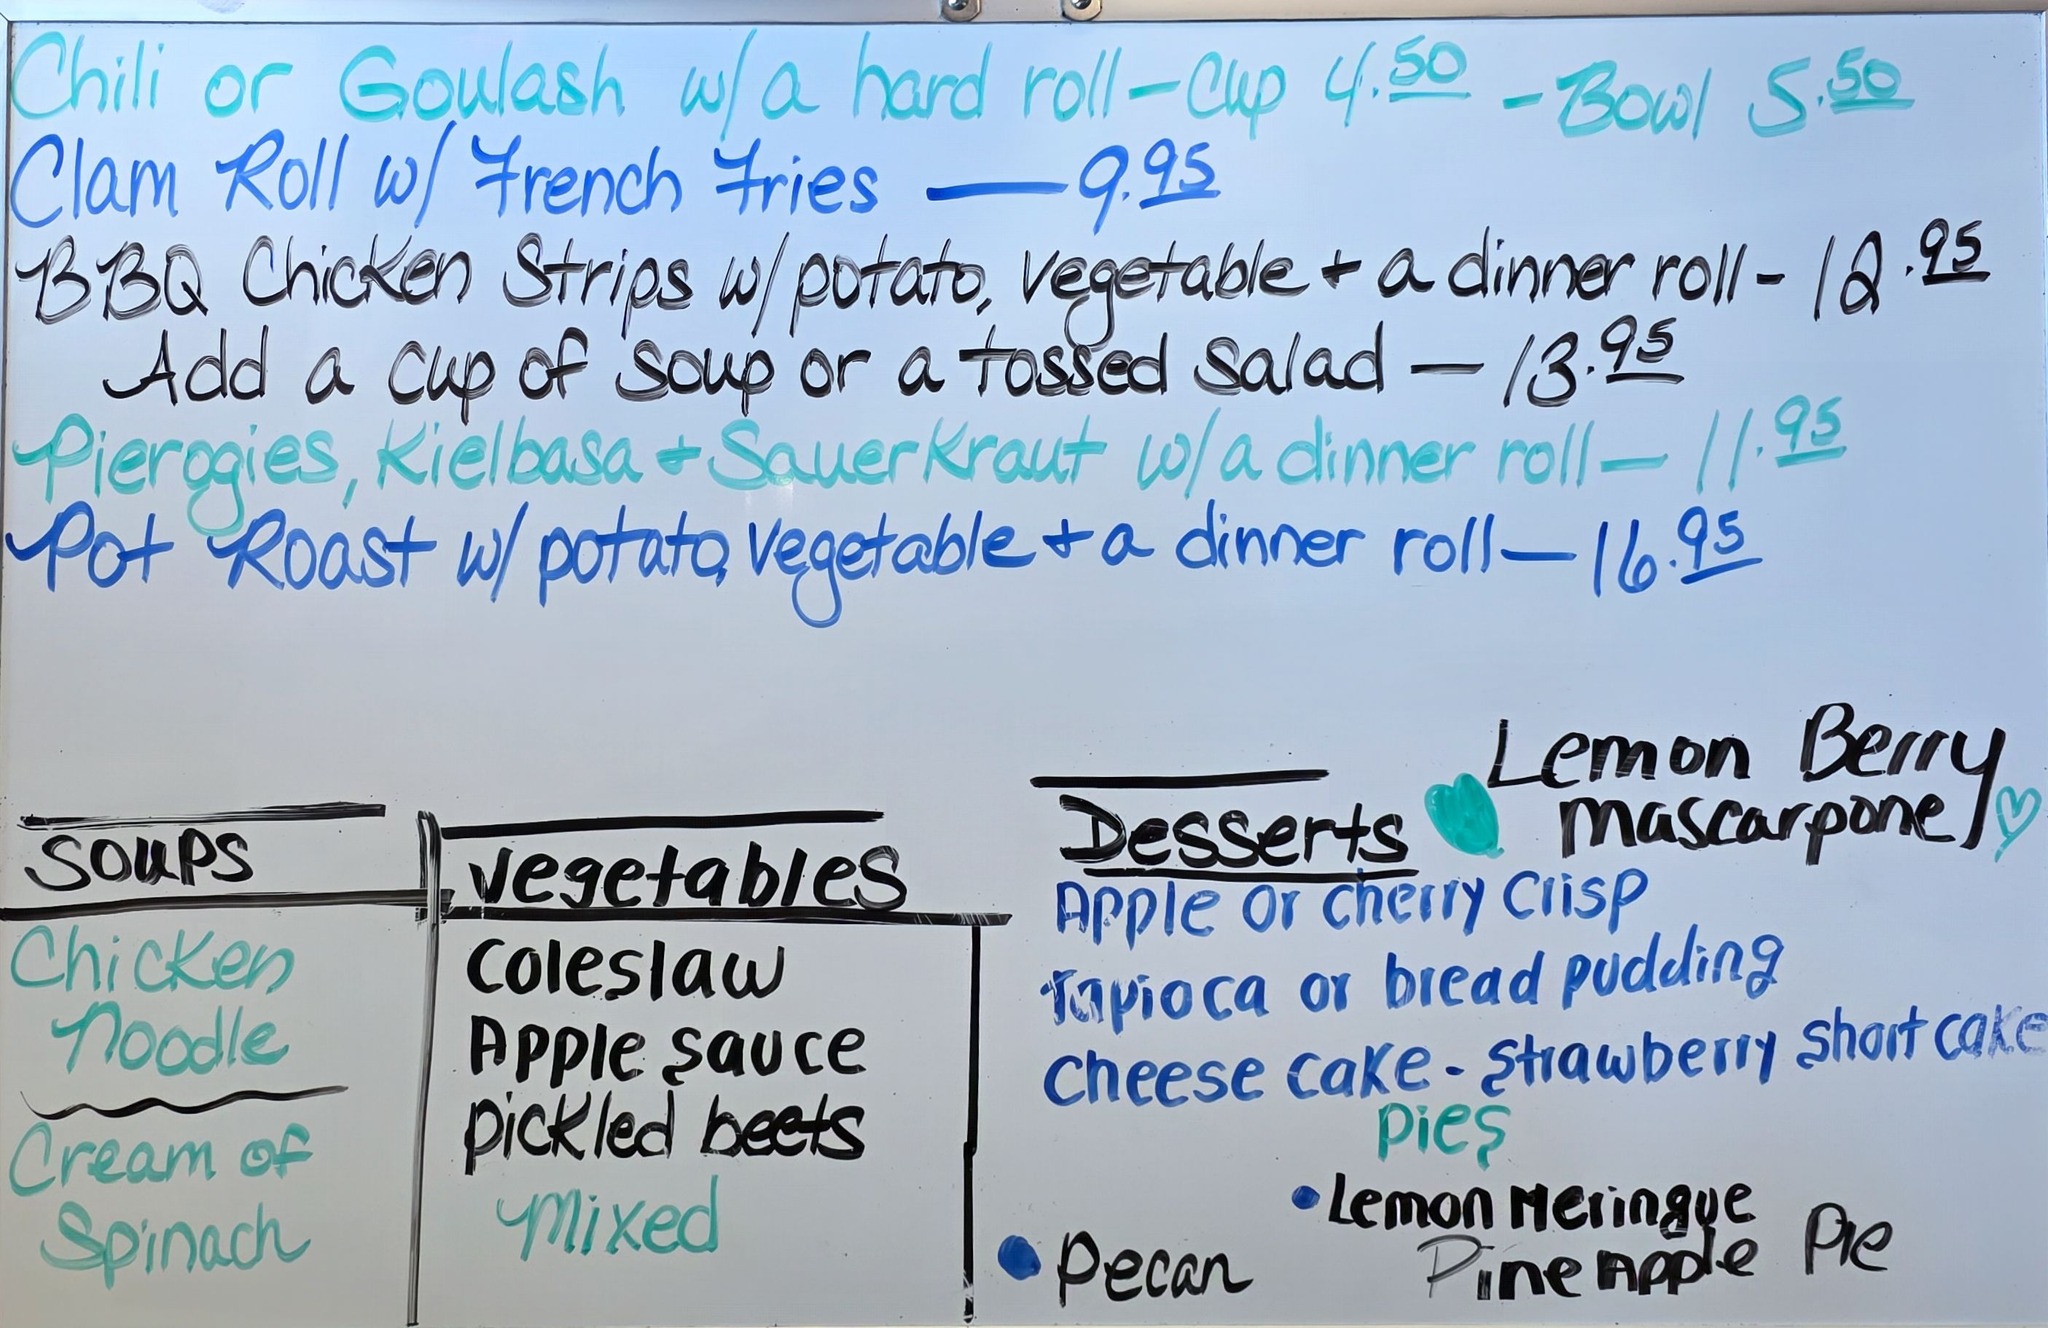 Chili or Goulash w/a hard roll - Cup 4.50 - Bowl 5.50
Clam Roll w/ French Fries — 9.95
BBQ Chicken Strips w/potato, vegetable + a dinner roll - 12.95
Add a cup of soup or a tossed salad — 13.95
Pierogies, Kielbasa + Sauerkraut w/a dinner roll — 11.95
Pot Roast w/potato, vegetable + a dinner roll — 16.95
Soups
Chicken
Noodle
Cream of
Spinach
Vegetables
Coleslaw
Apple sauce
pickled beets
Mixed
Lemon Berry
mascarpone
Desserts
Apple or cherry crisp
Tapioca or bread pudding
Cheese cake - strawberry short cake
pies
• Lemon Meringue
• Pecan
Pineapple Pie